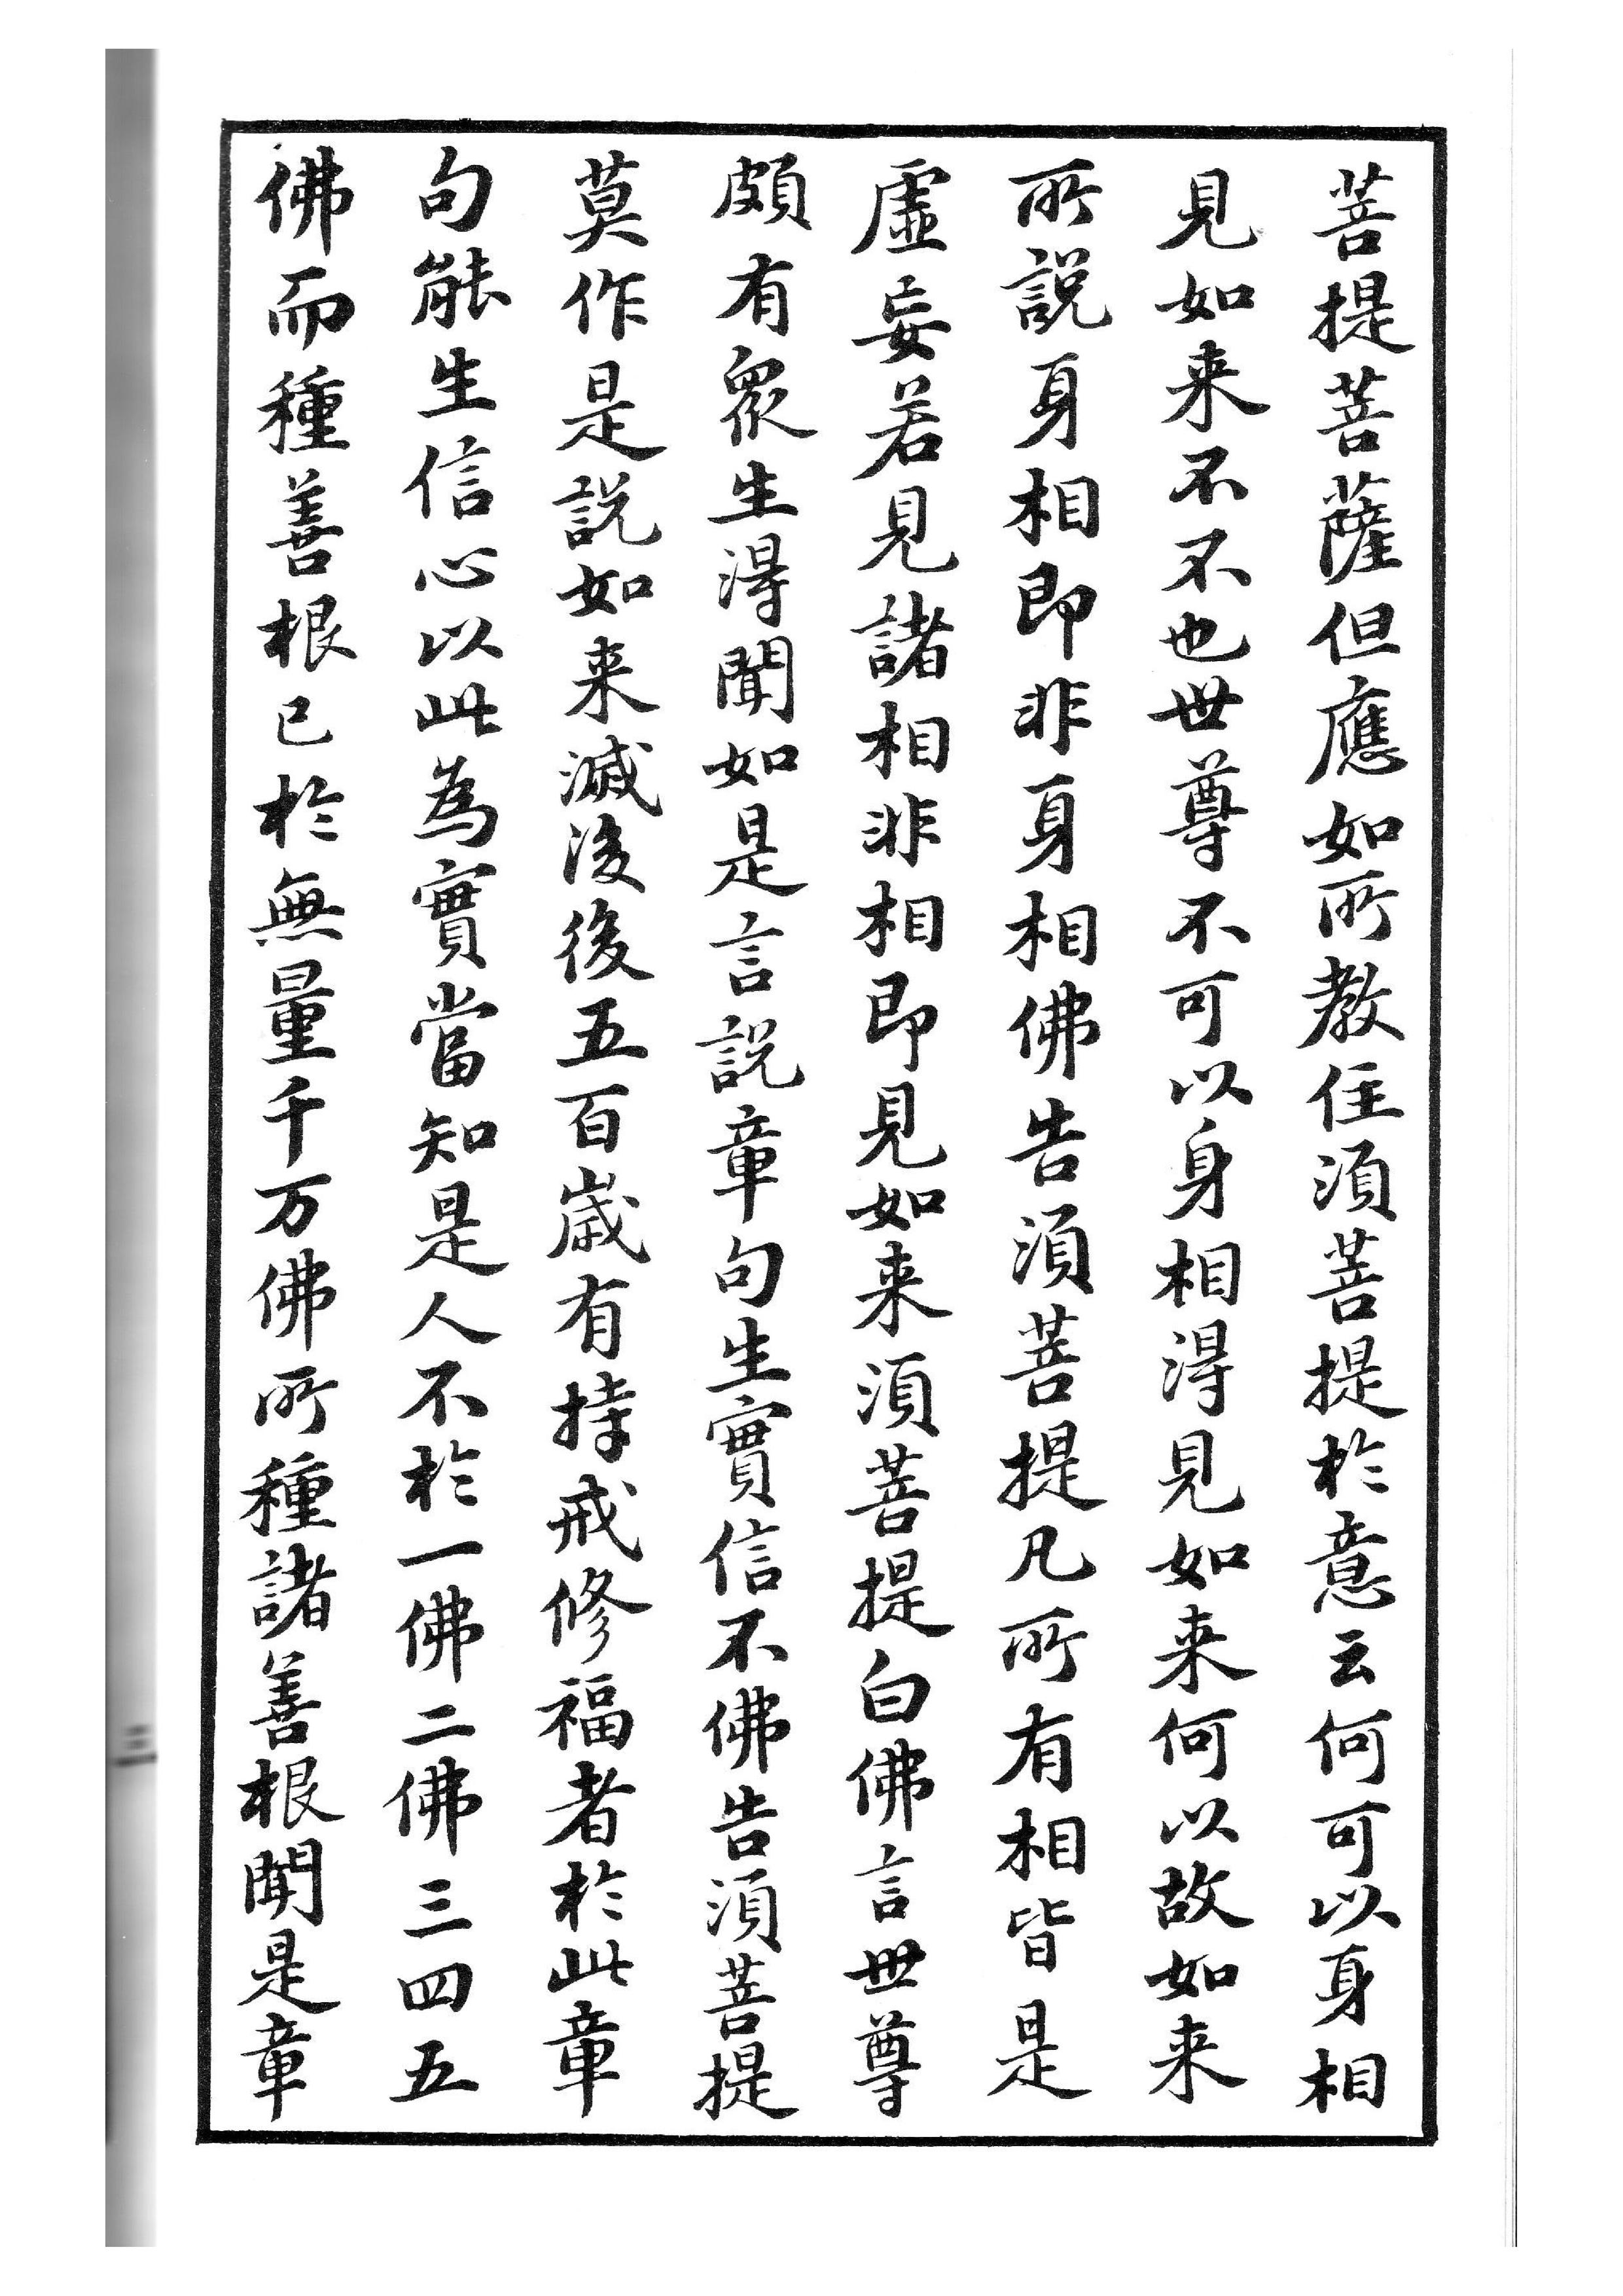 菩提菩薩但應如所教住須菩提於意云何可以身相
見如来不不也世尊不可以身相得見如来何以故如来
所說身相即非身相佛告須菩提凡所有相皆是
虛妄若見諸相非相即見如来須菩提白佛言世尊
頗有眾生得聞如是言說章句生實信不佛告須菩提
莫作是說如来滅後後五百歲有持戒修福者於此章
句能生信心以此為實當知是人不於一佛二佛三四五
佛而種善根已於無量千万佛所種諸善根聞是章
三